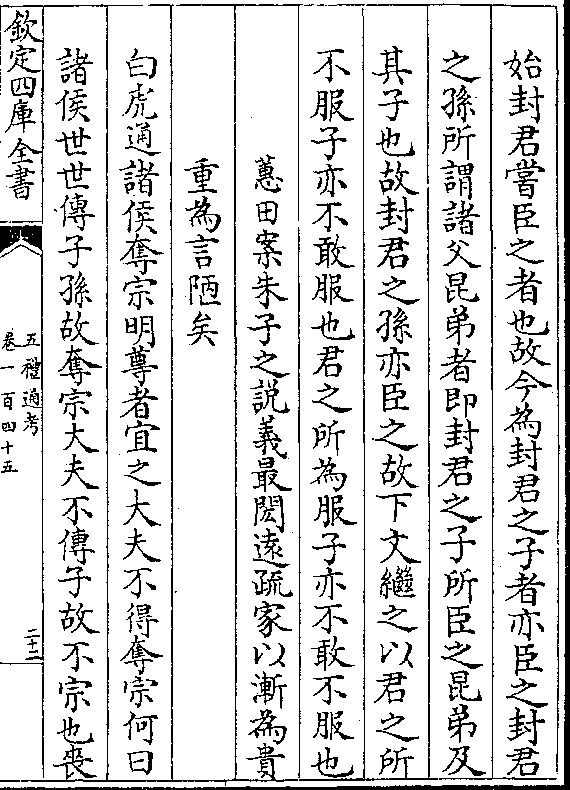 始封君嘗臣之者也故今為封君之子者亦臣之封君
之孫所謂諸父昆弟者即封君之子所臣之昆弟及
其子也故封君之孫亦臣之故下文繼之以君之所
不服子亦不敢服也君之所為服子亦不敢不服也
蕙田案朱子之説義最閎逺疏家以漸為貴
重為言陋矣
白虎通諸侯奪宗明尊者宜之大夫不得奪宗何曰
諸侯世世傳子孫故奪宗大夫不傳子故不宗也喪
欽定四庫全書
五禮通考
卷一百四十五
二十二